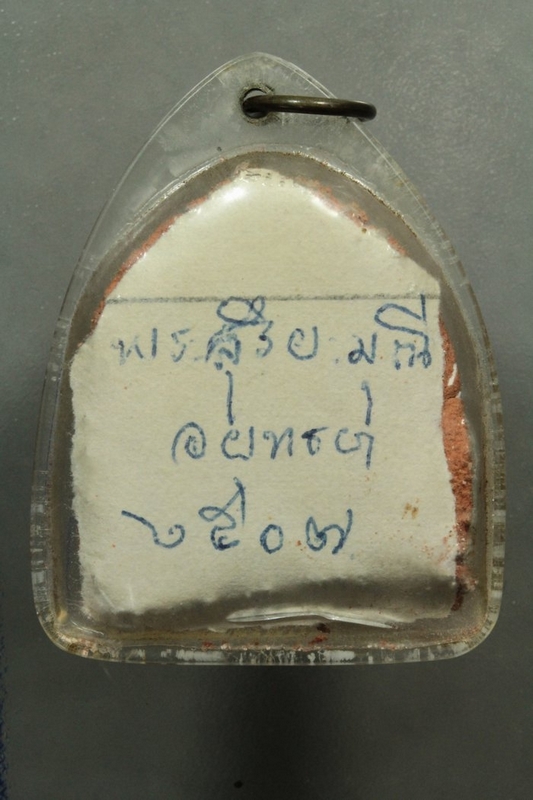 พระสุริยะมุณี
อยุทธยา
๒๕๐๗